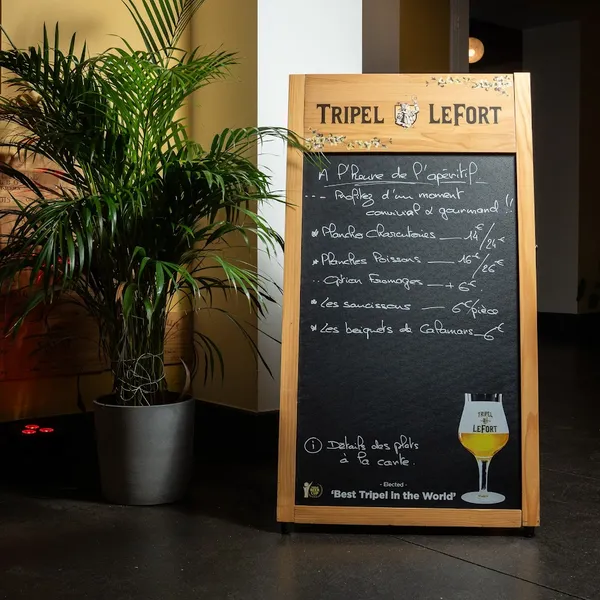 TRIPEL LEFORT
A l'heure de l'apéritif
--- Profitez d'un moment
convivial & gourmand !!
* Planche Charcuteries — 14€/24€
* Planches Poissons — 16€/26€
.. Option Fromages — + 6€
* Les saucissons — 6€/pièce
* Les beignets de Calamars — 6€
TRIPEL
LEFORT
i Détails des plats
à la carte.
- Elected -
'Best Tripel in the World'